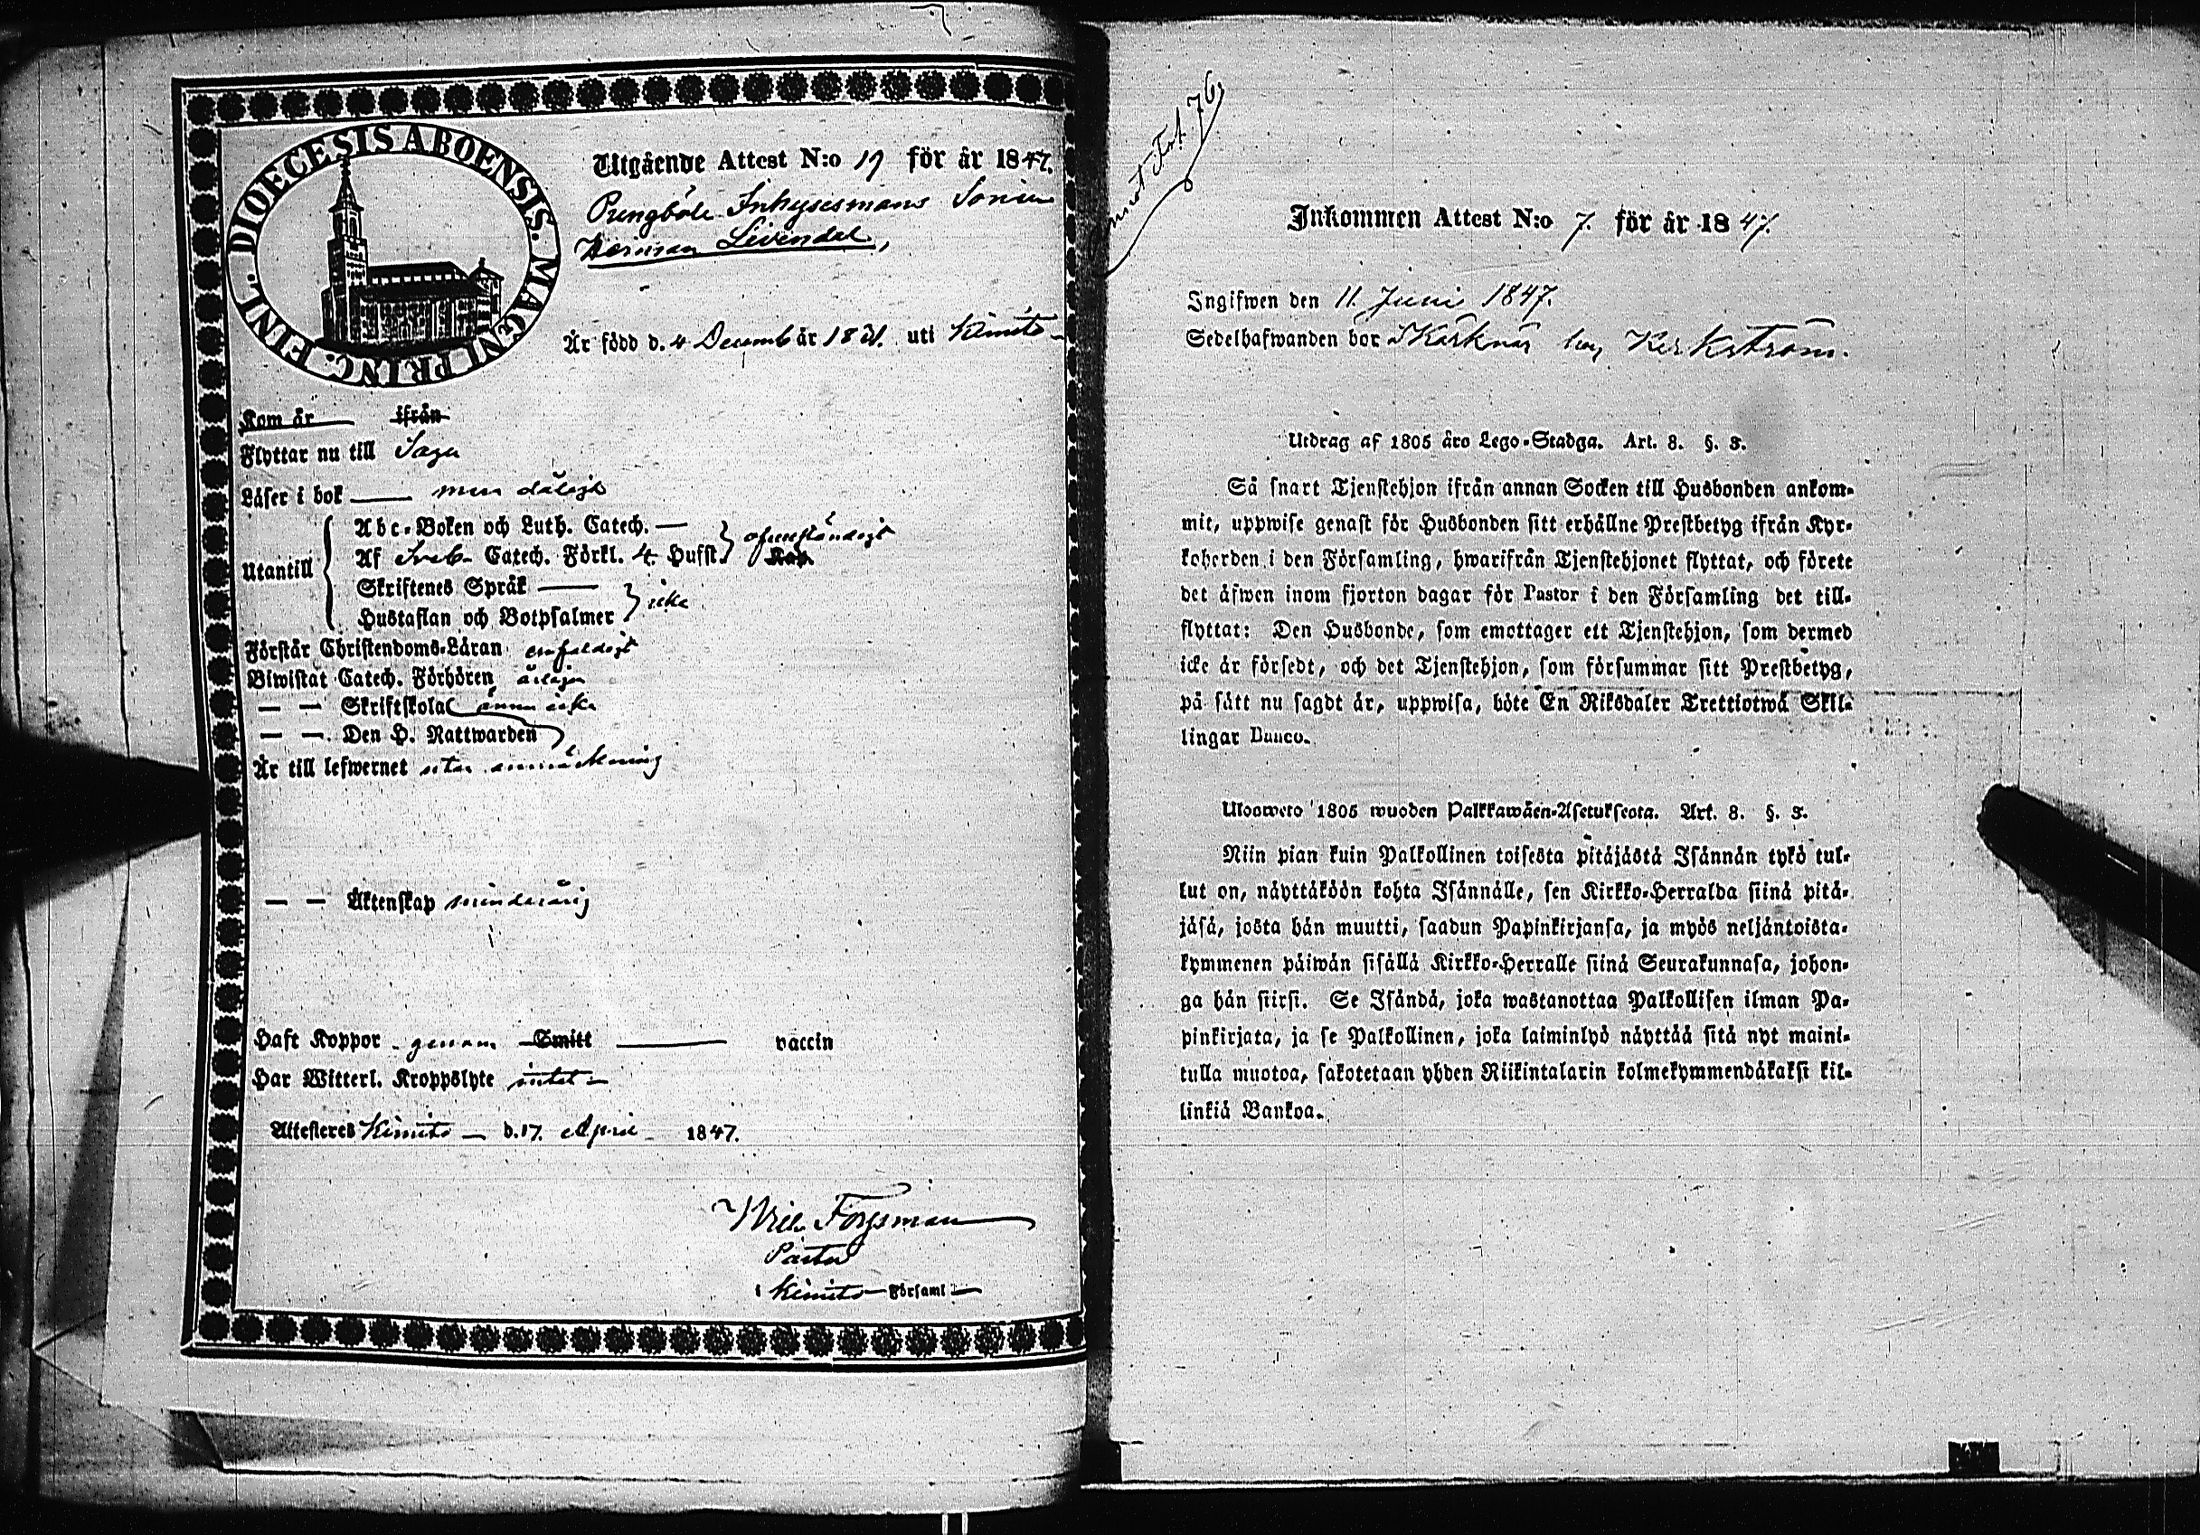 DIOECESIS ABOENSIS. MAGNI PRINC. FINL.
Utgående Attest N:o 19 för år 1847.
Pungböle Inhysesmans Sonen
Herman Levendal,
Är född d. 4 Decemb år 1831. uti Kimito
Kom år ifrån
Flyttar nu till Sagu
Läser i bok men dåligt
Utantill
Abc-Boken och Luth. Catech. —
Af Sveb. Catech. Förkl. 4. Hufst. ofullständigt
Skriftenes Språk —
Hustaflan och Botpsalmer icke
Förstår Christendoms-Läran enfaldigt
Biwistat Catech. Förhören årligen
— — Skriftskolan ännu icke
— — Den H. Nattwarden
Är till lefwernet utan anmärkning
— — Äktenskap minderårig
Haft Koppor genom Smitt — vaccin
Har Witterl. Kroppslyte intet
Attesteres Kimito d. 17. April 1847.
Forssman
Pastor
i Kimito Församl
Fol. 76
Inkommen Attest N:o 7. för år 1847.
Ingifwen den 11 Juni 1847.
Sedelhafwanden bor Kärknäs hos Kerkström.
Utdrag af 1805 åro Lego-Stadga. Art. 8. §. 3.
Så snart Tjenstehjon ifrån annan Socken till Husbonden ankom-
mit, uppwise genast för Husbonden sitt erhållne Prestbetyg ifrån Kyr-
koherden i den Församling, hwarifrån Tjenstehjonet flyttat, och förete
det äfwen inom fjorton dagar för Pastor i den Församling det till-
flyttat: Den Husbonde, som emottager ett Tjenstehjon, som dermed
icke är försedt, och det Tjenstehjon, som försummar sitt Prestbetyg,
på sätt nu sagdt är, uppwisa, böte En Riksdaler Trettiotwå Skil-
lingar Banco.
Ulosweto 1805 wuoden Palkkawäen-Asetuksesta. Art. 8. §. 3.
Niin pian kuin Palkollinen toisesta pitäjästä Isännän tykö tul-
lut on, näyttäköön kohta Isännälle, sen Kirkko-Herralda siinä pitä-
jäsä, josta hän muutti, saadun Papinkirjansa, ja myös neljäntoista-
kymmenen päiwän sisällä Kirkko-Herralle siinä Seurakunnasa, johon-
ga hän siirsi. Se Isändä, joka wastanottaa Palkollisen ilman Pa-
pinkirjata, ja se Palkollinen, joka laiminlyö näyttää sitä nyt maini-
tulla muotoa, sakotetaan yhden Riikintalarin kolmekymmendäkaksi kil-
linkiä Bankoa.